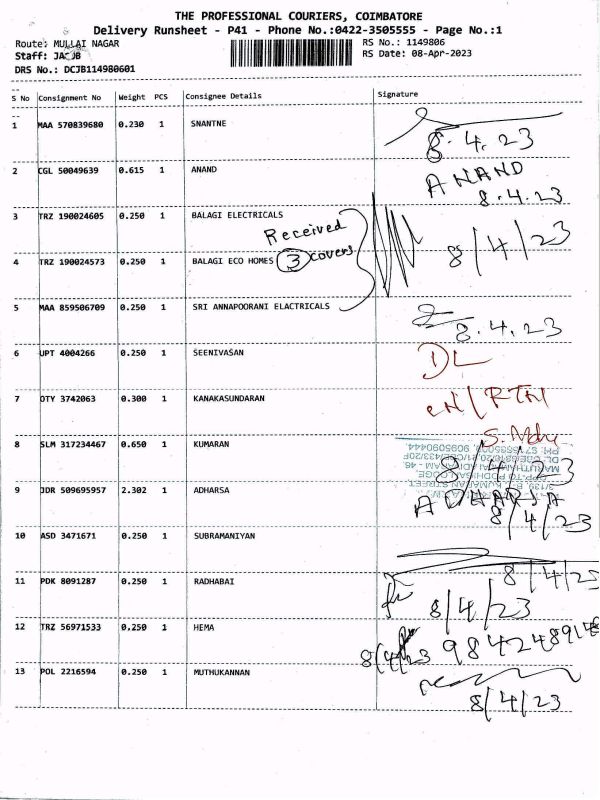 THE PROFESSIONAL COURIERS, COIMBATORE
Delivery Runsheet - P41 - Phone No.:0422-3505555 - Page No.:1
Route: MULLAI NAGAR
RS No.: 1149806
Staff: JACOB
RS Date: 08-Apr-2023
DRS No.: DCJB114980601
S No Consignment No Weight PCS Consignee Details Signature
1 MAA 570839680 0.230 1 SNANTNE 8.4.23
2 CGL 50049639 0.615 1 ANAND ANAND
8.4.23
3 TRZ 190024605 0.250 1 BALAGI ELECTRICALS
Received
8/4/23
4 TRZ 190024573 0.250 1 BALAGI ECO HOMES 3 covers
5 MAA 859506709 0.250 1 SRI ANNAPOORANI ELACTRICALS
8.4.23
6 UPT 4004266 0.250 1 SEENIVASAN DL
7 OTY 3742063 0.300 1 KANAKASUNDARAN
8 SLM 317234467 0.650 1 KUMARAN
8/4/23
9 JDR 509695957 2.302 1 ADHARSA ADHARSA
8/4/23
10 ASD 3471671 0.250 1 SUBRAMANIYAN
8/4/23
11 PDK 8091287 0.250 1 RADHABAI
8/4/23
12 TRZ 56971533 0.250 1 HEMA
8/4/23
13 POL 2216594 0.250 1 MUTHUKANNAN
8/4/23